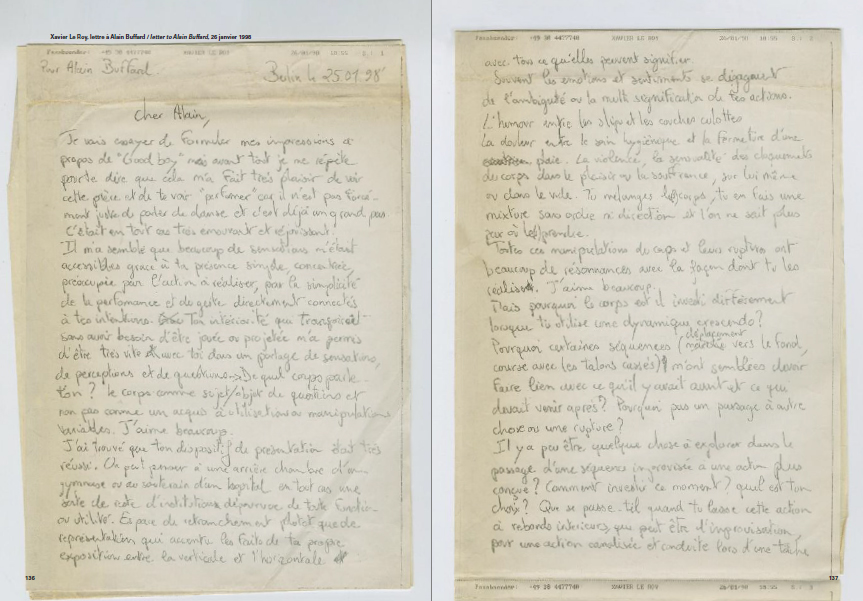 Xavier Le Roy, lettre à Alain Buffard / letter to Alain Buffard, 26 janvier 1998
Faxabsender: +49 30 4477740 XAVIER LE ROY 26/01/98 10:55 S : 1
Pour Alain Buffard. Berlin le 25.01.98
cher Alain,
Je vais essayer de formuler mes impressions à
propos de "Good boy" mais avant tout je me répète
pour te dire que cela m'a fait très plaisir de voir
cette pièce et de te voir "performer" car il n'est pas forcé-
ment juste de parler de danse et c'est déjà un grand pas
C'était en tout cas très émouvant et réjouissant!
Il m'a semblé que beaucoup de sensations m'étaient
accessibles grace à ta présence simple, concentrée,
préoccupée par l'action à réaliser, par la simplicité
de la performance et du geste directement connectés
à tes intentions. Ton intériorité qui transparait
sans avoir besoin d'être jouée ou projetée m'a permis
d'être très vite avec toi dans un partage de sensations,
de perceptions et de questions. De quel corps parle-
t'on? le corps comme sujet/objet de questions et
non pas comme un acquis à utilisations ou manipulations
variables. J'aime beaucoup.
J'ai trouvé que ton dispositif de présentation était très
réussi. On peut penser à une arrière chambre d'un
gymnase ou au souterrain d'un hopital en tout cas une
sorte de reste d'institutions dépourvue de toute fonction
ou utilité. Espace de retranchement plutot que de
représentation qui accentue les faits de ta propre
exposition entre la verticale et l'horizontale
136
Faxabsender: +49 30 4477740 XAVIER LE ROY 26/01/98 10:55 S : 2
avec tous ce qu'elles peuvent signifier.
Souvent les émotions et sentiments se dégagent
de l'ambiguité ou la multi signification de tes actions.
L'humour entre les slips et les couches culottes
La douleur entre le soin hygiénique et la fermeture d'une
plaie. La violence, la sensualité des claquements
du corps dans le plaisir ou la souffrance, sur lui même
ou dans le vide. Tu mélanges les corps, tu en fais une
mixture sans ordre ni direction et l'on ne sait plus
par où les prendre.
Toutes ces manipulations du corps et leurs ruptures ont
beaucoup de résonnances avec la façon dont tu les
réalises. J'aime beaucoup.
Mais pourquoi le corps est il investi différemment
lorsque tu utilise une dynamique crescendo?
Pourquoi certaines séquences (déplacement vers le fond,
course avec les talons cassés) m'ont semblées devoir
faire lien avec ce qu'il y avait avant et ce qui
devait venir après? Pourquoi pas un passage à autre
chose ou une rupture?
Il y a peu être quelque chose à explorer dans le
passage d'une séquence improvisée à une action plus
conçue? Comment investir ce moment? quel est ton
choix? Que se passe-t-il quand tu laisse cette action
à rebonds intérieurs, que peut être d'improvisation,
pour une action canalisée et conduite lors d'une tâche
Faxabsender: +49 30 4477740 XAVIER LE ROY 26/01/98 10:55
137